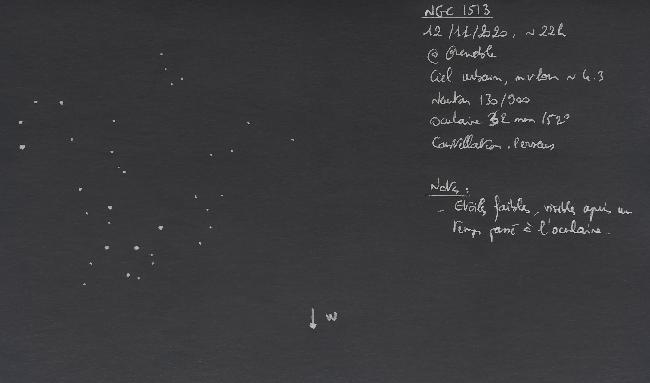 NGC 1513
12/11/2020, ~22h
@ Grenoble
Ciel urbain, mvlon ~ 4.3
Newton 130/900
Oculaire 32 mm /52°
Constellation : Perseus
Notes :
- Etoiles faibles, visibles après un
temps passé à l'oculaire.
W